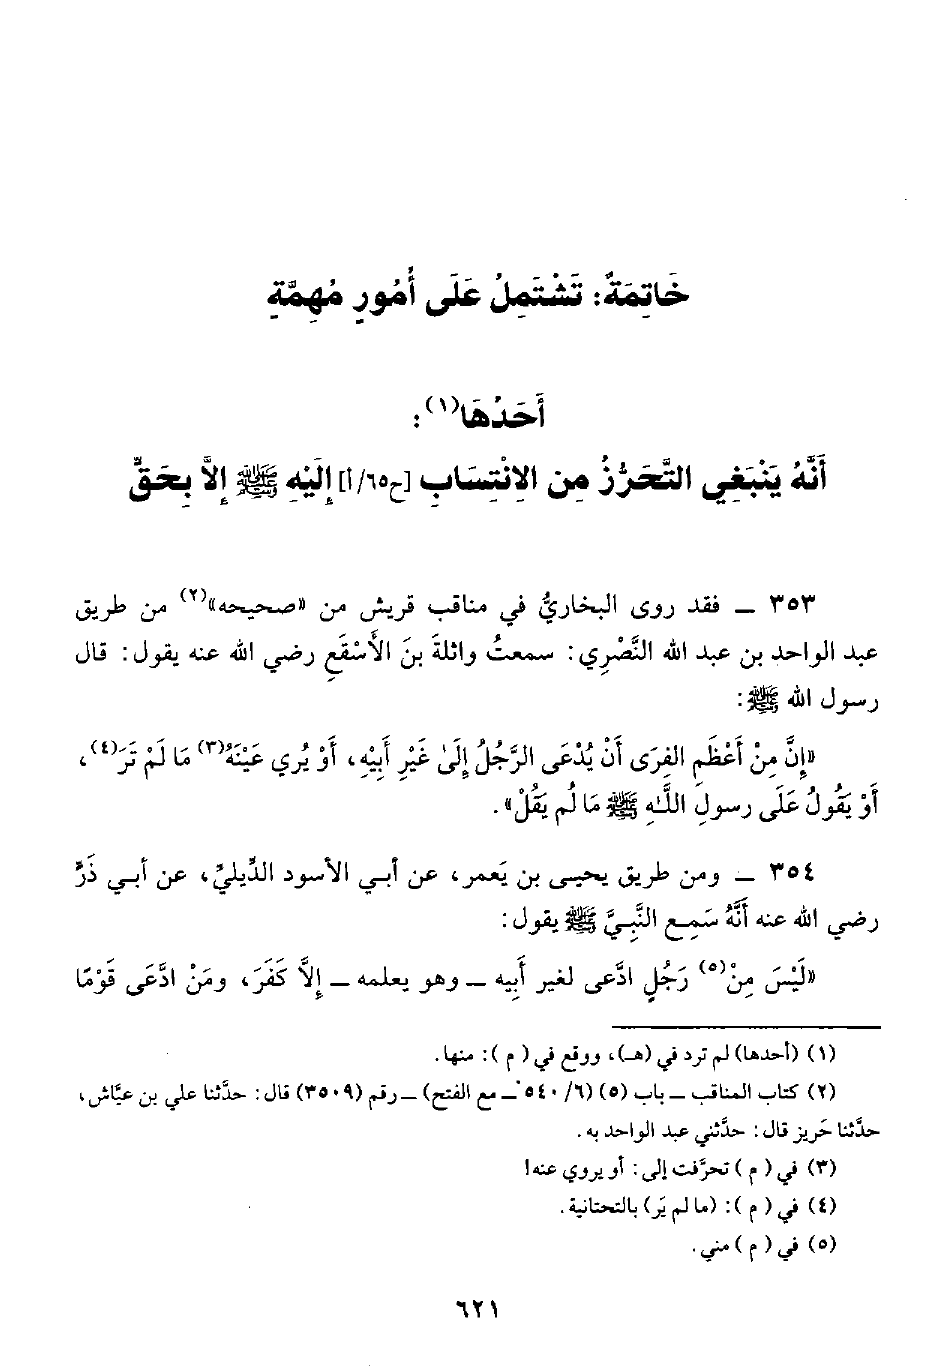 خَاتِمَةٌ: تَشْتَمِلُ عَلَى أُمُورٍ مُهِمَّةٍ
أَحَدُهَا(١):
أَنَّهُ يَنْبَغِي التَّحَرُّزُ مِن الِانْتِسَابِ [ح٦٥/أ] إِلَيْهِ ﷺ إِلاَّ بِحَقٍّ
٣٥٣ ــ فقد روى البخاريُّ في مناقب قريش من «صحيحه»(٢) من طريق
عبد الواحد بن عبد الله النَّصْرِي: سمعتُ واثلةَ بنَ الأَسْقَعِ رضي الله عنه يقول: قال
رسول الله ﷺ:
«إِنَّ مِنْ أَعْظَمِ الفِرَى أَنْ يُدْعَى الرَّجُلُ إِلَىٰ غَيْرِ أَبِيْهِ، أَوْ يُرِي عَيْنَهُ(٣) مَا لَمْ تَرَ(٤)،
أَوْ يَقُولُ عَلَى رسولِ اللَّـهِ ﷺ مَا لُم يَقُلْ».
٣٥٤ ــ ومن طريق يحيى بن يَعمر، عن أبي الأسود الدِّيليِّ، عن أبي ذَرٍّ
رضي الله عنه أَنَّهُ سَمِع النَّبِيَّ ﷺ يقول:
«لَيْسَ مِنْ(٥) رَجُلٍ ادَّعى لغير أَبِيه ــ وهو يعلمه ــ إِلاَّ كَفَرَ، ومَنْ ادَّعَى قَوْمًا
(١) (أحدها) لم ترد في (هـ)، ووقع في ( م ): منها.
(٢) كتاب المناقب ــ باب (٥) (٦/ ٥٤٠ ــ مع الفتح) ــ رقم (٣٥٠٩) قال: حدَّثنا علي بن عيَّاش،
حدَّثنا حَريز قال: حدَّثني عبد الواحد به.
(٣) في ( م ) تحرَّفت إلى: أو يروي عنه!
(٤) في ( م ): (ما لم يَر) بالتحتانية.
(٥) في ( م ) مني.
٦٢١